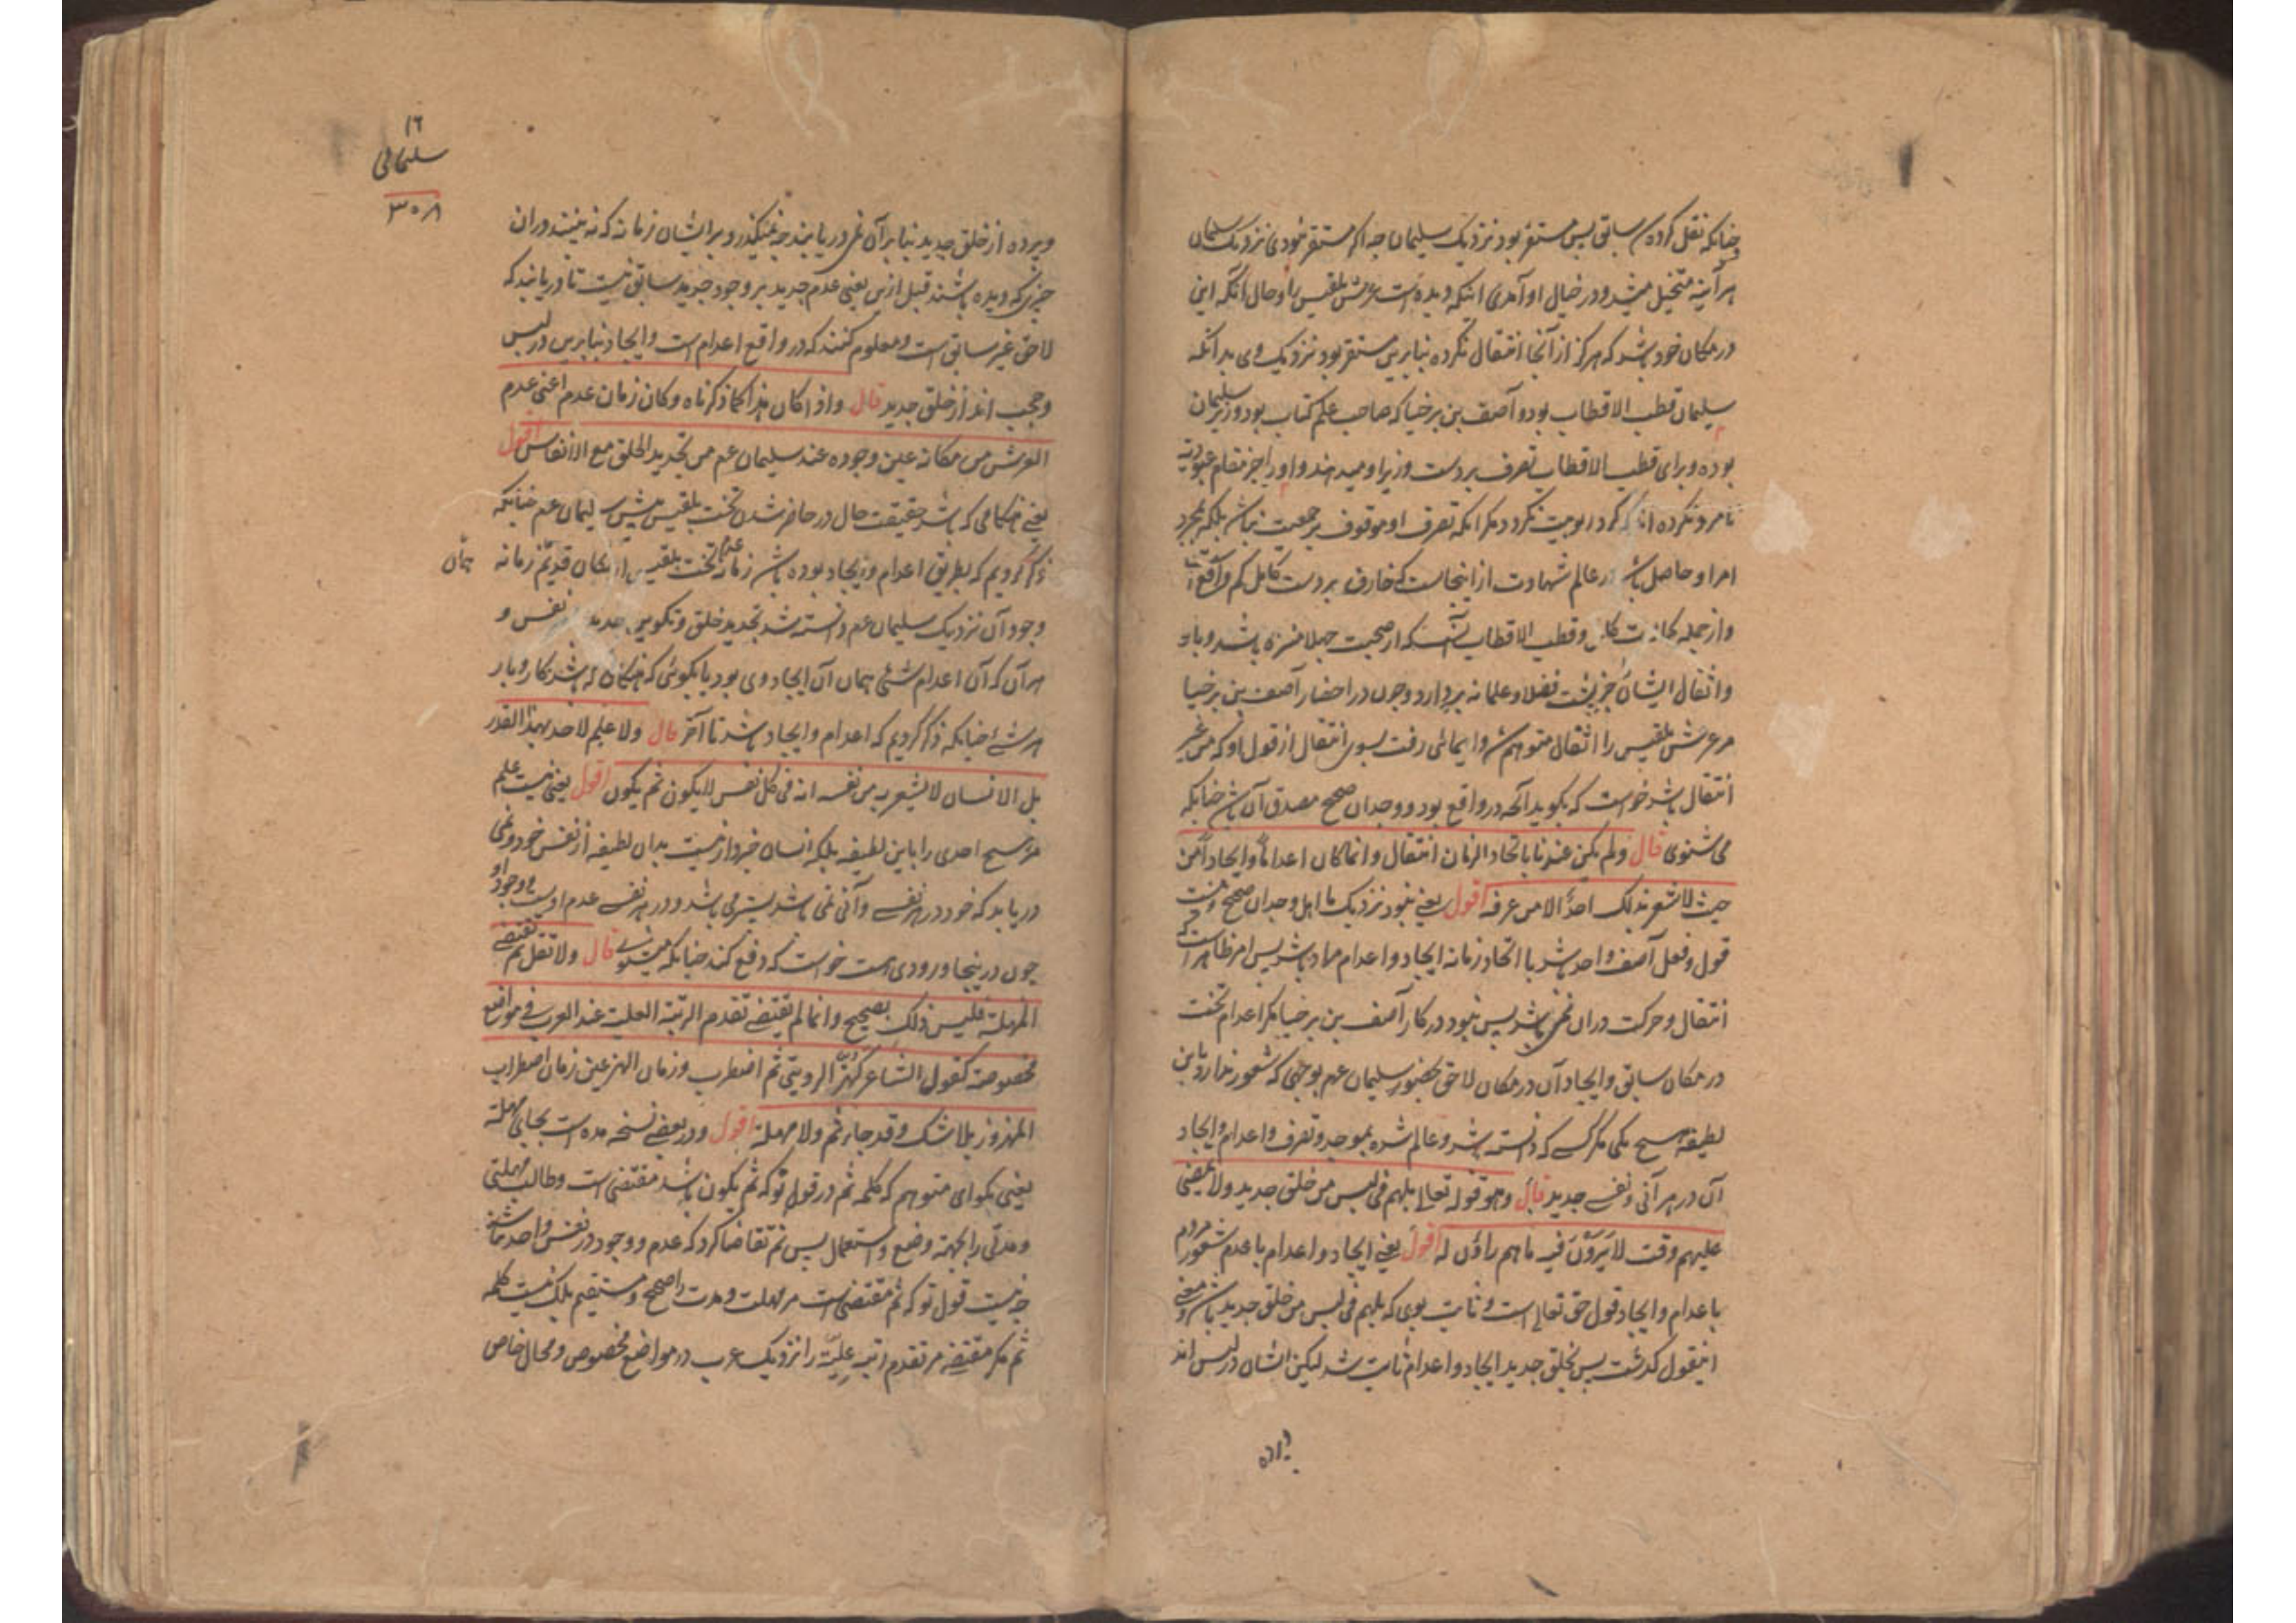 چنانکه نقل کرده‌ام سابق پس مستقر بود نزدیک سلیمان چه اگر مستقر نبودی نزدیک سلیمان
هر آینه متخیل میشد و در خیال او آمدی اینکه دیده است عرش بلقیس را و حال آنکه این
در مکان خود باشد که هرگز از آنجا انتقال نکرده بنابرین مستقر بود نزدیک وی بدانکه
سلیمان قطب الاقطاب بود و آصف بن برخیا که صاحب علم کتاب بود وزیر سلیمان
بوده و برای قطب الاقطاب تصرف بر دست وزیر او میدهند و او را جز مقام عبودیة
نامزد نکرده اند که گرد ربوبیت نگردد مگر آنکه تصرف او موقوف بر جمعیت نباشد بلکه بمجرد
امر او حاصل باشد در عالم شهادت از اینجاست که خارق بر دست کامل کم واقع
و از جمله کمالات کامل و قطب الاقطاب آنست که از صحبت جهلا منزه باشد و بار
و اثقال ایشان جز پشت فضلا و علما نه بردارد و چون در احضار آصف بن برخیا
مر عرش بلقیس را انتقال متوهم شد و ایمائی رفت بسوی انتقال از قول او که من غیر
انتقال باشد خواست که بگوید آنچه در واقع بود و وجدان صحیح مصدق آن باشد چنانکه
می شنوی قال ولم یکن عندنا باتحاد الزمان انتقال وانما کان اعداما وایجادا من
حیث لا یشعر بذلک احد الا من عرفه اقول یعنی نبود نزدیک ما اهل وجدان صحیح
قول و فعل آصف واحد باشد با اتحاد زمانه ایجاد و اعدام پس امر ظاهر است که
انتقال و حرکت دران نمی باشد پس نبود در کار آصف بن برخیا مگر اعدام تخت
در مکان سابق و ایجاد آن در مکان لاحق بحضور سلیمان عم بوجهی که شعور ندارد باین
لطیفه هیچ یکی مگر کسی که دانسته باشد و عالم شده بموجد و تصرف و اعدام و ایجاد
آن در هر آنی و نفسی جدید قال وهو قوله تعالی بل هم فی لبس من خلق جدید ولا یمضی
علیهم وقت لا یرون فیه ما هم راؤن له اقول یعنی ایجاد و اعدام با عدم شعور مردم
باعدام و ایجاد قول حق تعالی است و ثابت بوی که بل هم فی لبس من خلق جدید باشد و معنی
اینقول گذشت پس بخلق جدید ایجاد و اعدام ثابت شد لیکن ایشان در لبس اند
وپرده
١٦
سلیمانی
٣٠٨
وپرده از خلق جدید بنابر آن نمی دریابند چه نمیگذرد بر ایشان زمانه که نه بینند دران
چیزی که دیده باشند قبل ازین یعنی عدم جدید بر وجود جدید سابق نیست تا دریابند که
لاحق غیر سابق است و معلوم کنند که در واقع اعدام است و ایجاد بنابرین در لبس
و حجب اند از خلق جدید قال واذا کان هذا کما ذکرناه وکان زمان عدم اعنی عدم
العرش من مکانه عین وجوده عند سلیمان عم من تجدید الخلق مع الانفاس اقول
یعنی هنگامی که باشد حقیقت حال در حاضر شدن تخت بلقیس پیش سلیمان عم چنانکه
ذکر کردیم که بطریق اعدام و ایجاد بوده باشد زمانه عدم تخت بلقیس از مکان قدیم زمانه
همان
وجود آن نزدیک سلیمان عم دانسته شد تجدید خلق و تکوین جدید هر نفس و
هر آن که آن اعدام شئی همان آن ایجاد وی بود یا بگوئی که هنگامی که باشد کار و بار
هر شئے چنانکه ذکر کردیم که اعدام و ایجاد باشد تا آخر قال ولا علم لاحد بهذا القدر
بل الانسان لا یشعر به من نفسه انه فی کل نفس لا یکون ثم یکون اقول یعنی نیست علم
مر هیچ احدی را باین لطیفه بلکه انسان خبردار نیست بدان لطیفه از نفس خود و نمی
دریابد که خود در هر نفسے و آنی نمی باشد پستر می باشد و در هر نفسے عدم اوست و وجود او
چون در ینجا ورودی هست خواست که دفع کند چنانکه میشنوی قال ولا تقل ثم تقتضی
المهلة فلیس ذلک بصحیح وانما ثم یقتضی تقدم الرتبة العلیة عند العرب فی مواضع
مخصوصة کقول الشاعر کهز الردینی ثم اضطرب وزمان الهز عین زمان اضطراب
المهزوز بلا شک وقد جاء ثم ولا مهلة اقول و در بعضے نسخه مده است بجای مهلة
یعنی بگو ای متوهم که کلمه ثم در قول تو که ثم یکون باشد مقتضی است و طالب مهلتی
و مدتی را بجهة وضع و استعمال پس ثم تقاضا کرد که عدم و وجود در نفس واحد نباشند
چه نیست قول تو که ثم مقتضی است مر مهلت و مدت را صحیح و مستقیم بلکه نیست کلمه
ثم مگر مقتضی مر تقدم رتبه علیة را نزدیک عرب در مواضع مخصوص و محال خاص